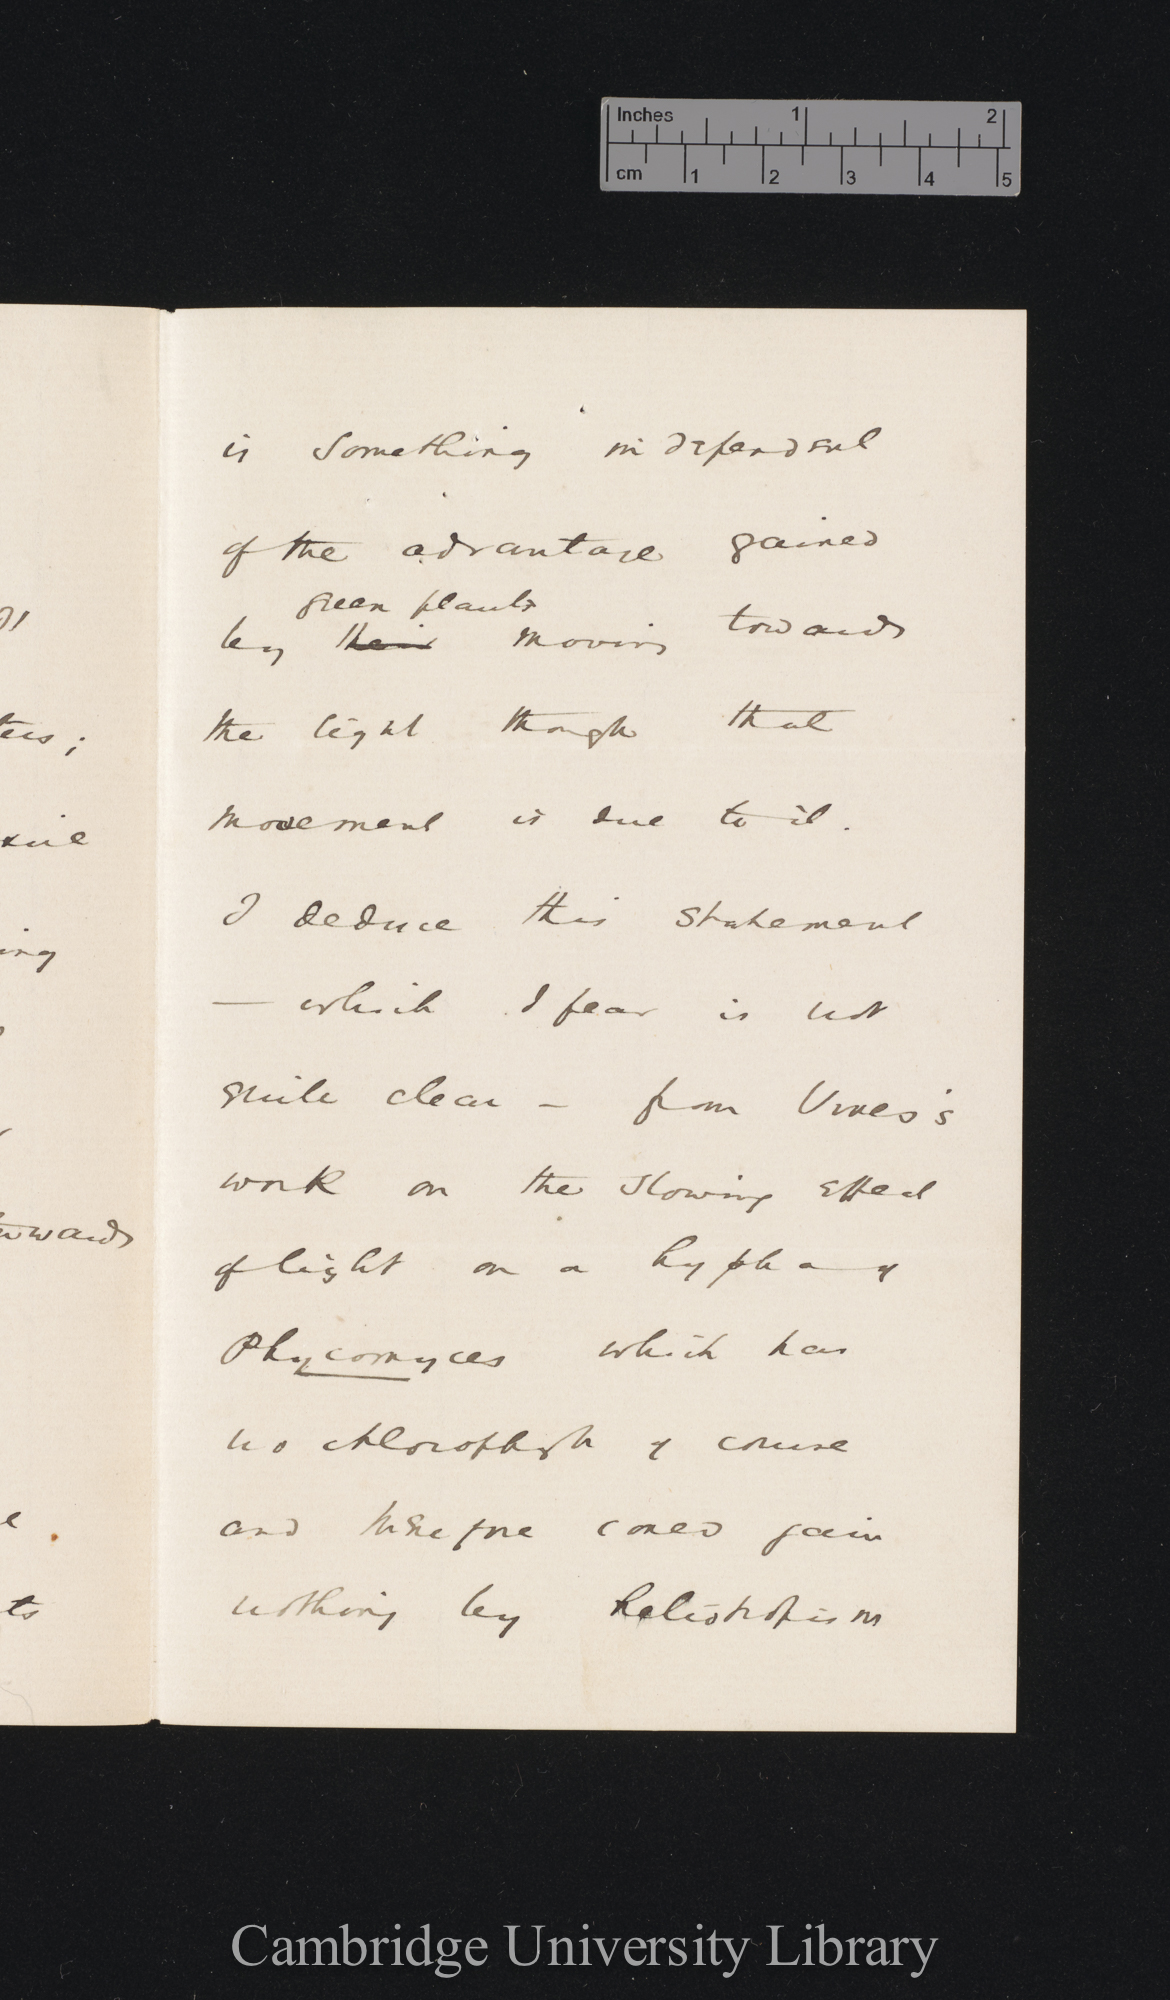 Inches 1 2
cm 1 2 3 4 5
is something independent
of the advantage gained
green plants
by their moving towards
the light though that
movement is due to it.
I deduce this statement
— which I fear is not
quite clear — from Vines's
work on the slowing effect
of light on a hypha of
Phycomyces which has
no chlorophyh of course
and therefore could gain
nothing by heliotropism
ters;
ing
towards
e
ts
Cambridge University Library